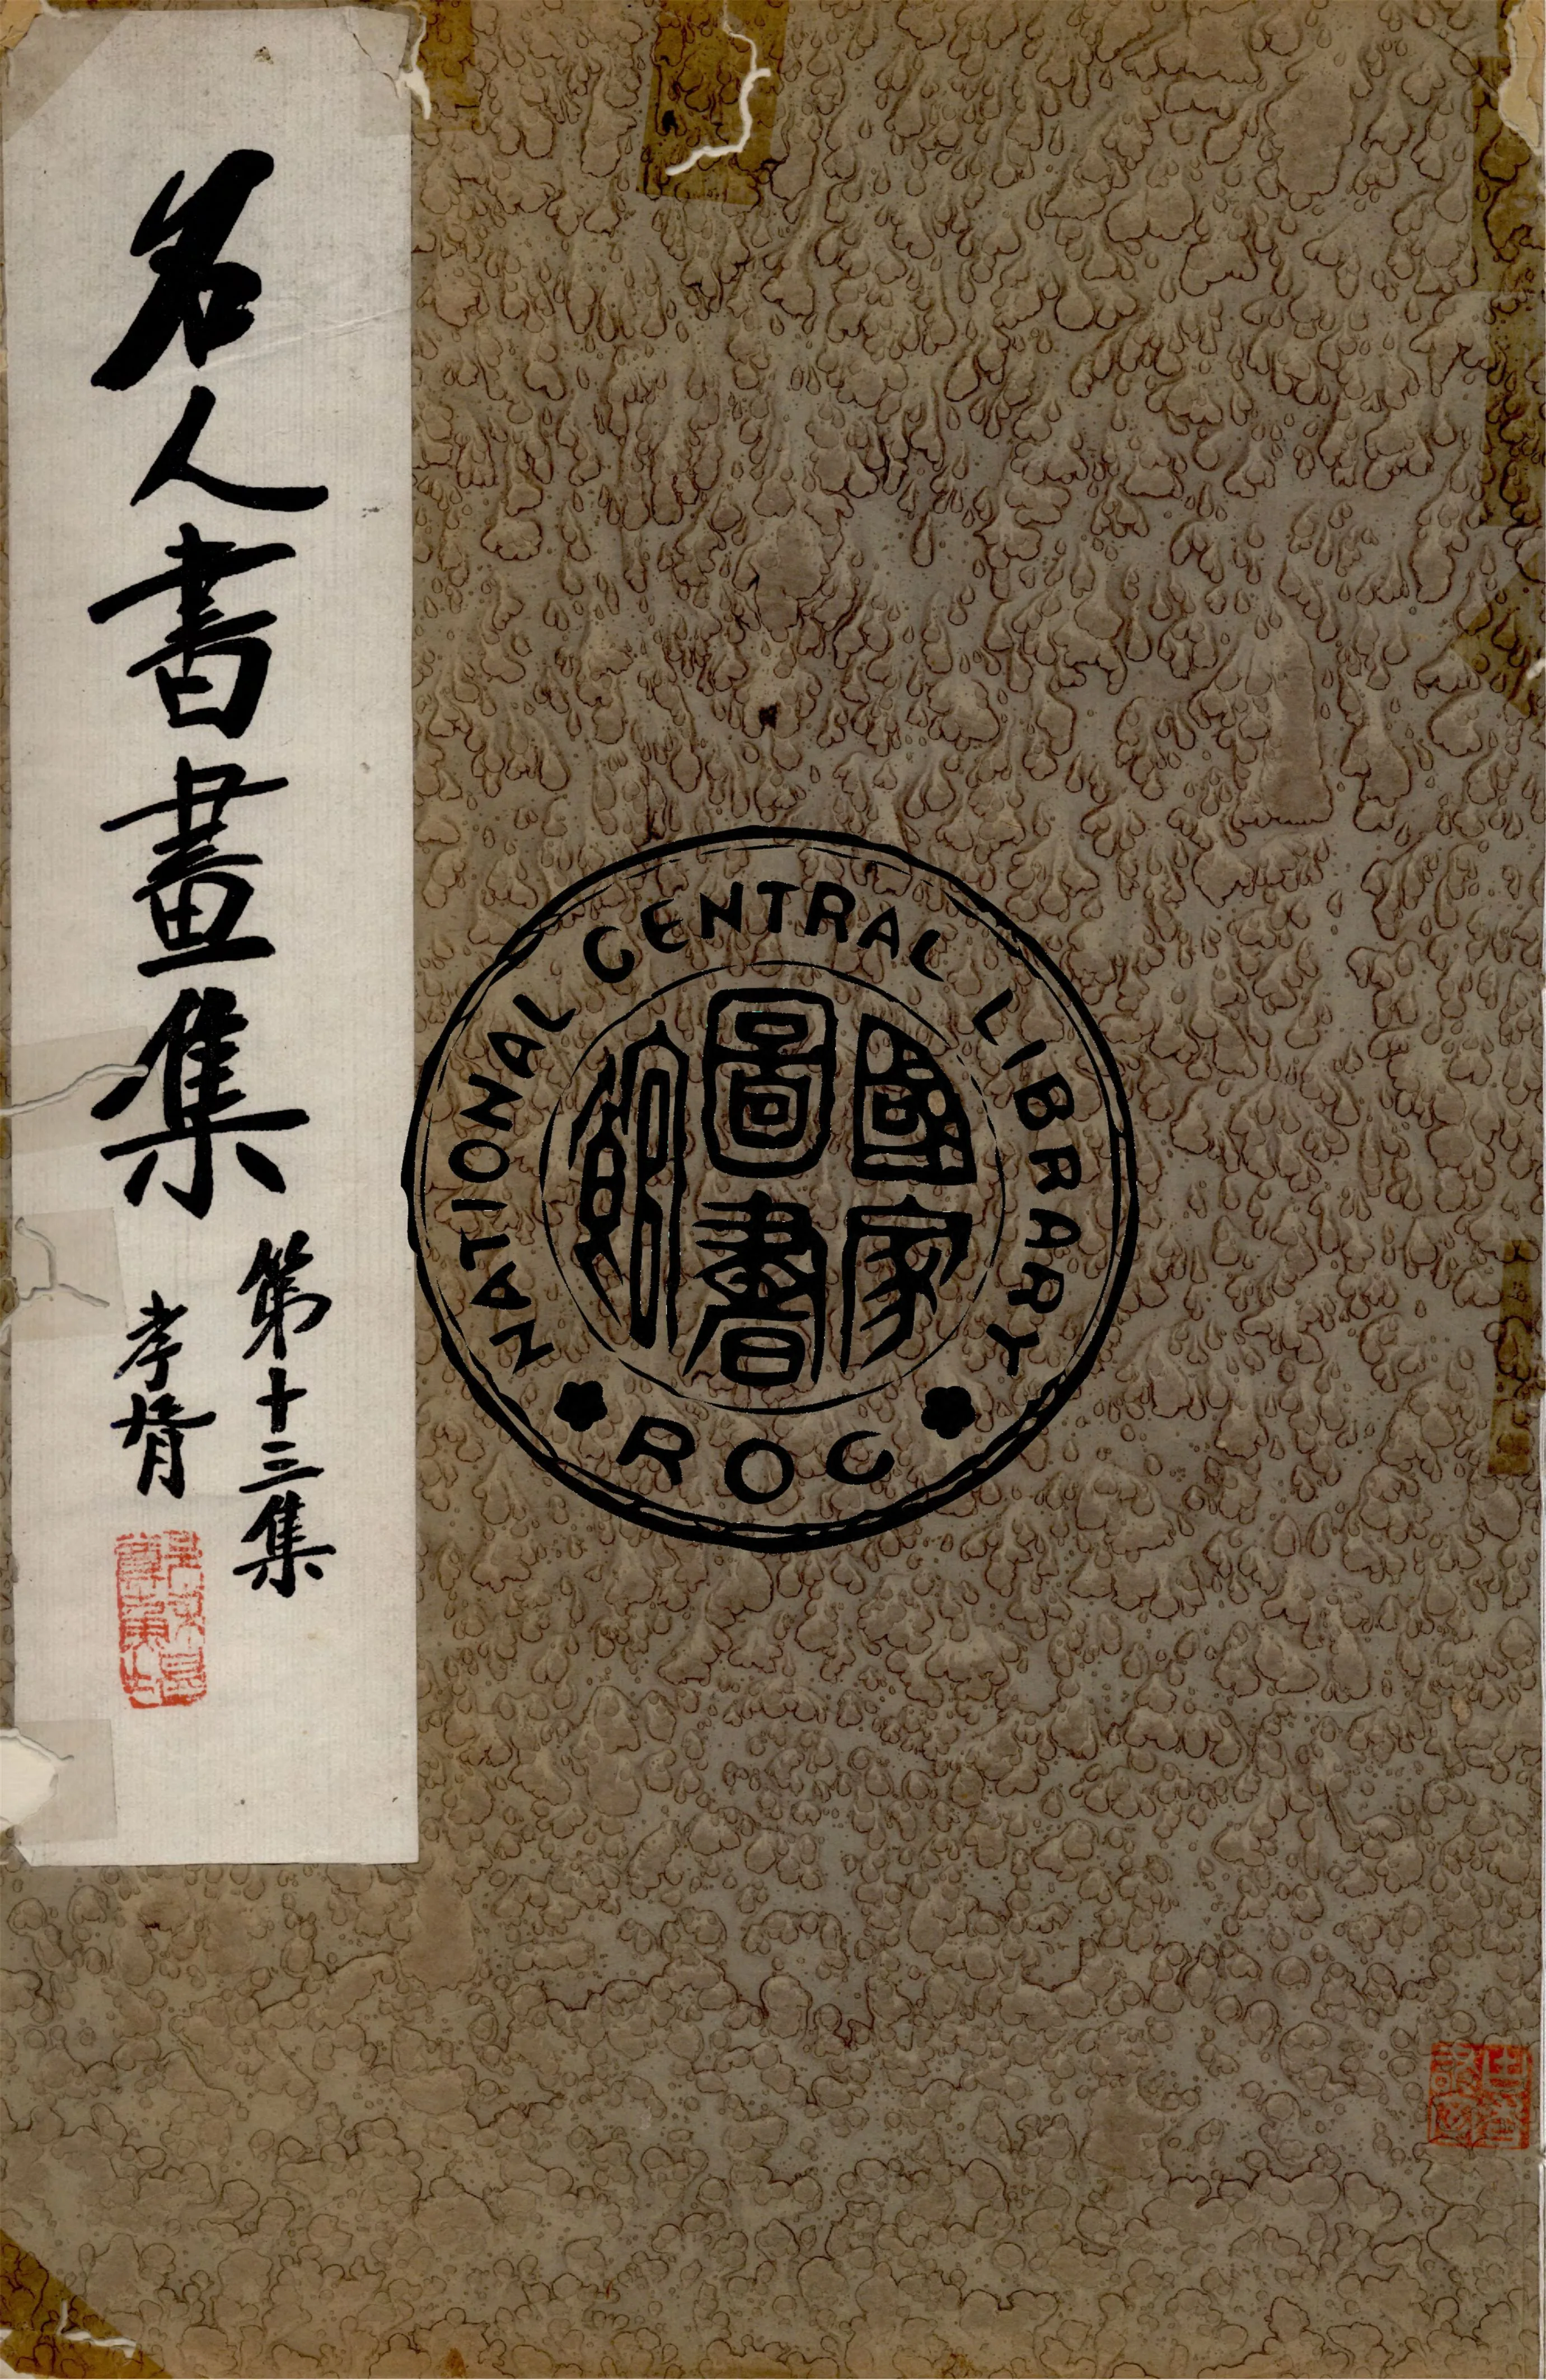 名人書畫集
第十三集
孝胥
NATIONAL CENTRAL LIBRARY
國家
圖書
館
ROC